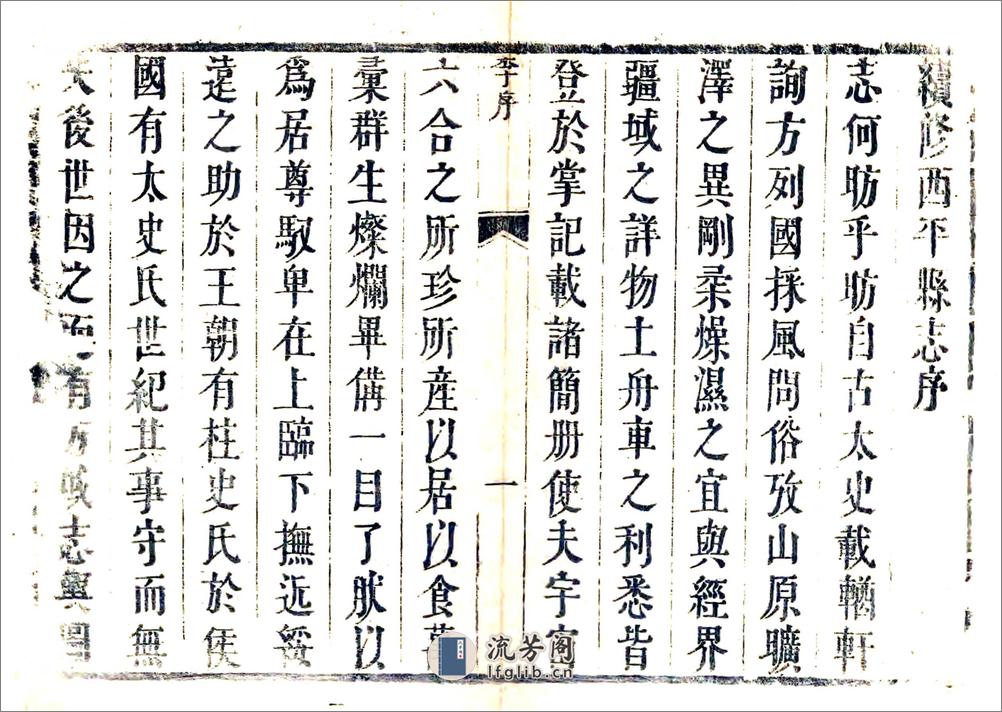 續修西平縣志序
志何昉乎昉自古太史載輶軒
詢方列國採風問俗攷山原曠
澤之異剛柔燥濕之宜與經界
疆域之詳物土舟車之利悉皆
登於掌記載諸簡册使夫宇宙
李序
一
六合之所珍所産以居以食
彙群生燦爛畢備一目了肰以
爲居尊馭卑在上臨下撫近綏
遠之助於王朝有柱史氏於侯
國有太史氏世紀其事守而無
失後世因之而有方域志輿圖
流芳阁
lfglib.cn